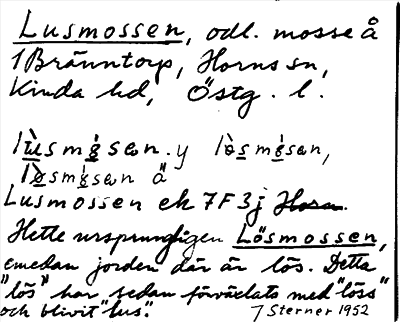 Lusmossen, odl. mosse å
1 Bränntorp, Horns sn,
Kinda hd, Östg. l.
Lusmossen ek 7F3j Horn.
Hette ursprungligen Lösmossen,
emedan jorden där är lös. Detta
"lös" har sedan förväxlats med "löss"
och blivit "lus".
J Sterner 1952